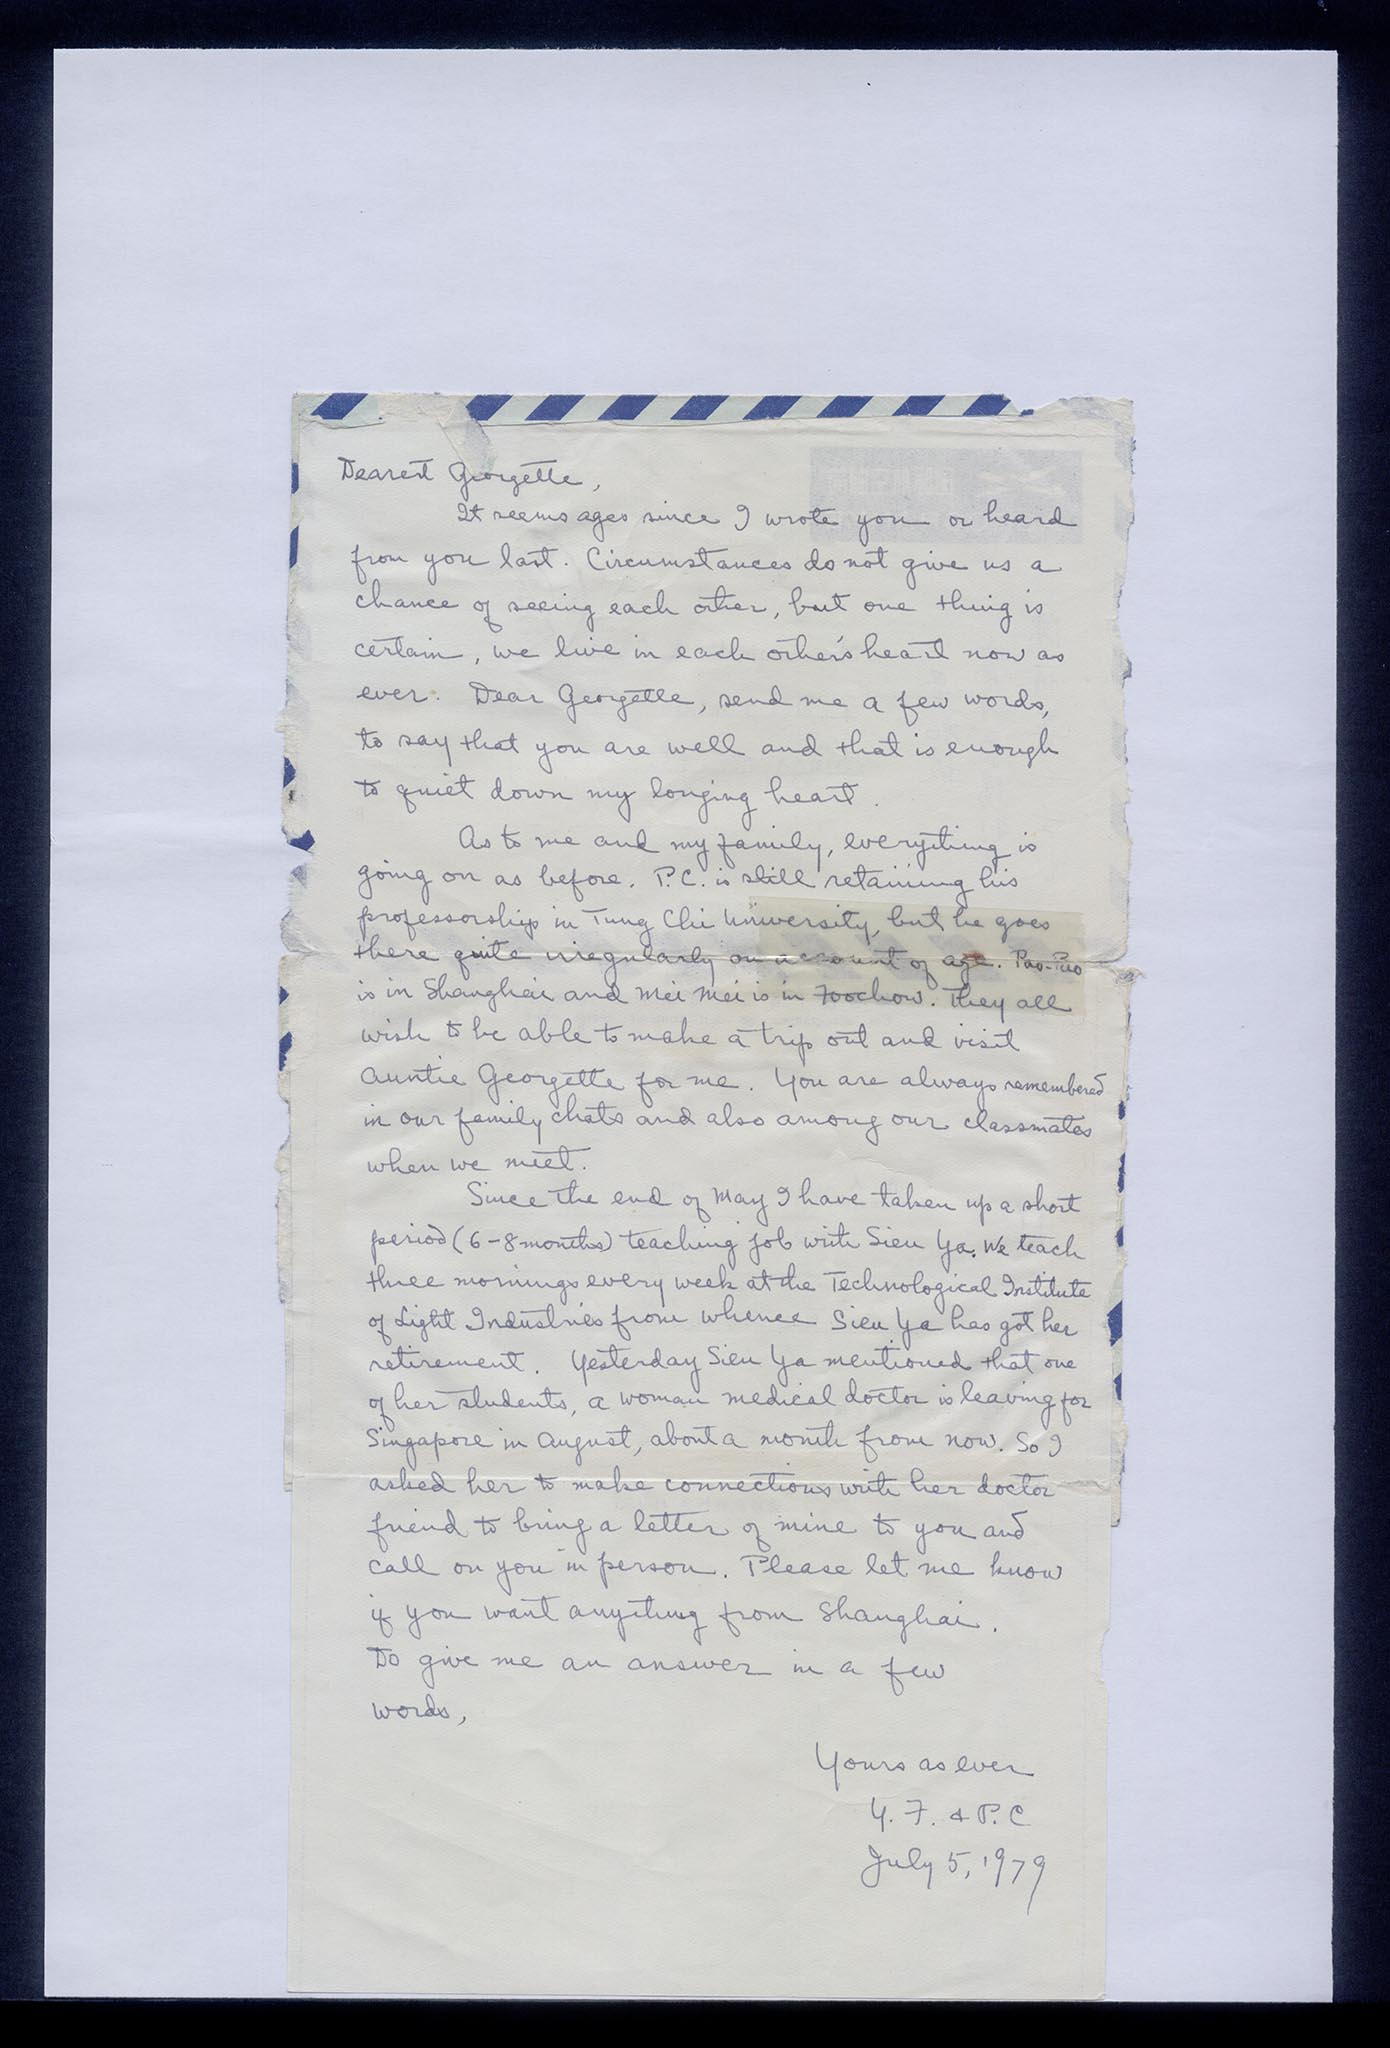 Dearest Georgette,
It seems ages since I wrote you or heard
from you last. Circumstances do not give us a
chance of seeing each other, but one thing is
certain, we live in each other's heart now as
ever. Dear Georgette, send me a few words,
to say that you are well and that is enough
to quiet down my longing heart.
As to me and my family, everything is
going on as before. P.C. is still retaining his
professorship in Tung Chi University, but he goes
there quite irregularly on account of age. Pao-Pao
is in Shanghai and Mei Mei is in Foochow. They all
wish to be able to make a trip out and visit
Auntie Georgette for me. You are always remembered
in our family chats and also among our classmates
when we meet.
Since the end of May I have taken up a short
period (6-8 months) teaching job with Sieu Ya. We teach
three mornings every week at the Technological Institute
of Light Industries from whence Sieu Ya has got her
retirement. Yesterday Sieu Ya mentioned that one
of her students, a woman medical doctor is leaving for
Singapore in August, about a month from now. So I
asked her to make connections with her doctor
friend to bring a letter of mine to you and
call on you in person. Please let me know
if you want anything from Shanghai.
Do give me an answer in a few
words,
Yours as ever
Y. F. & P.C
July 5, 1979